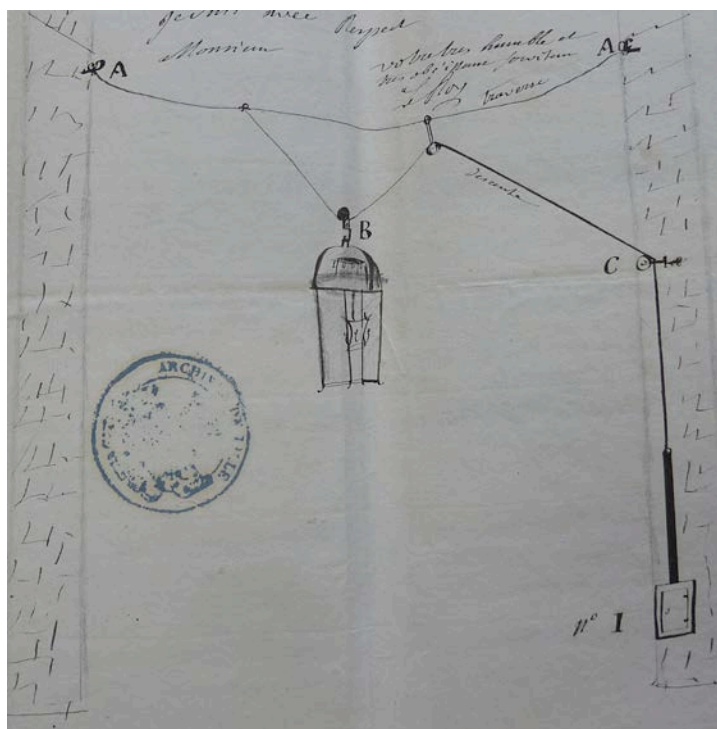 je suis avec Respect
Monsieur
votre tres humble et
tres obeissant serviteur
A
A
traverse
descente
B
C
n° I
ARCHIVES DE LILLE